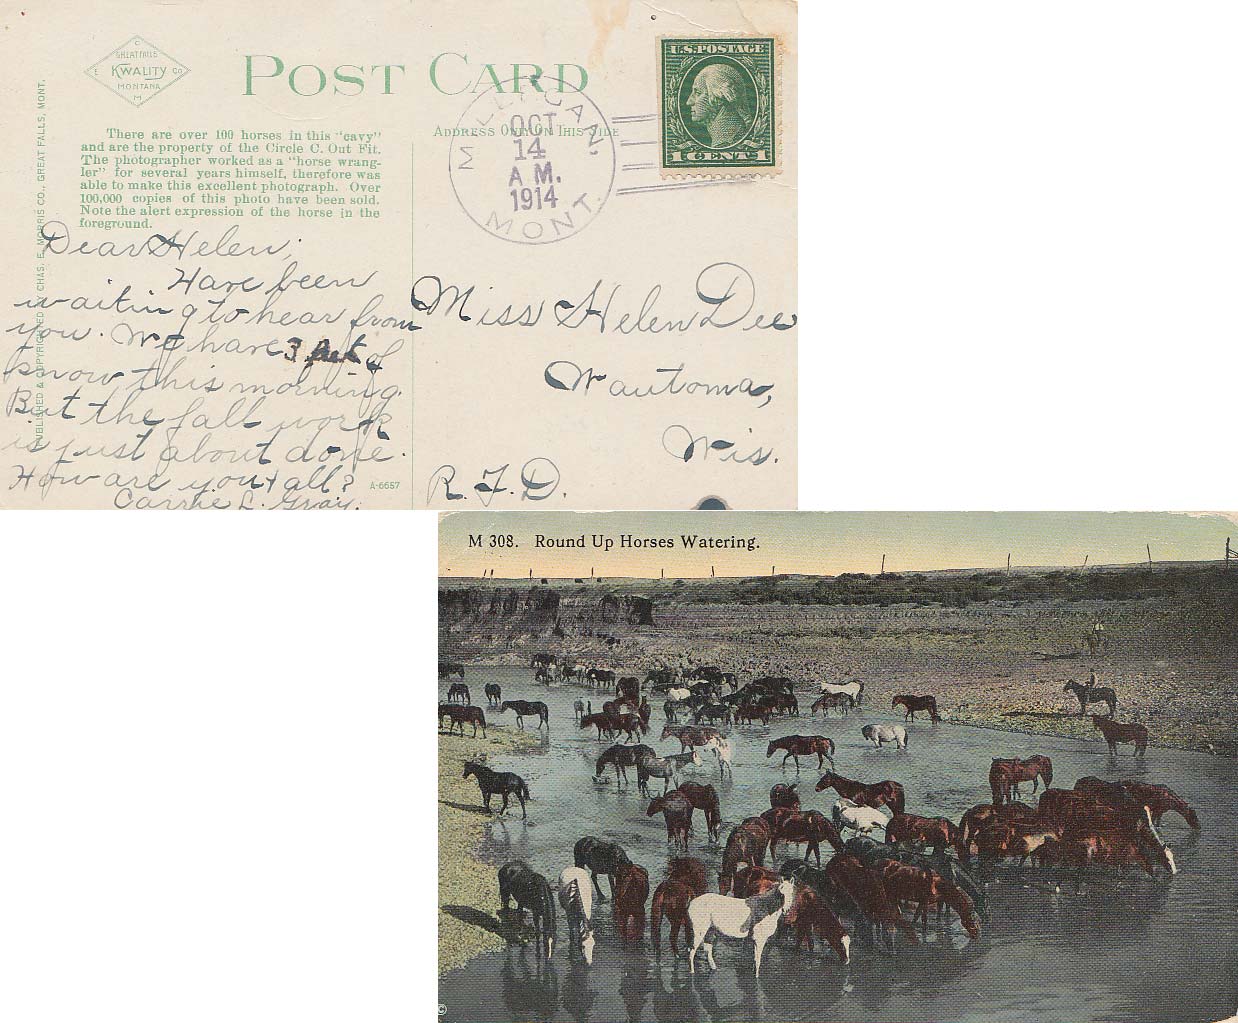 C
GREAT FALLS
E KWALITY CO
MONTANA
M
POST CARD
ADDRESS ONLY ON THIS SIDE
There are over 100 horses in this "cavy"
and are the property of the Circle C. Out Fit.
The photographer worked as a "horse wrang-
ler" for several years himself, therefore was
able to make this excellent photograph. Over
100,000 copies of this photo have been sold.
Note the alert expression of the horse in the
foreground.
PUBLISHED & COPYRIGHTED BY CHAS. E. MORRIS CO., GREAT FALLS, MONT.
MILLIGAN,
OCT
14
A M.
1914
MONT.
U.S. POSTAGE
1 CENT 1
Dear Helen;
Have been
waiting to hear from
you. We have 3 of
know this morning.
But the fall work
is just about done.
How are you + all?
Carrie L. Gray.
A-6657
Miss Helen Dee
Wautoma,
Wis.
R. F. D.
M 308. Round Up Horses Watering.
©